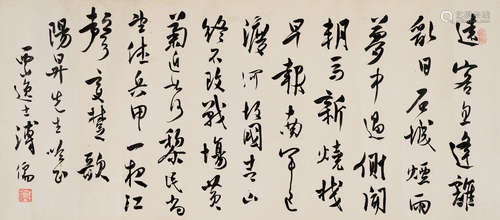 遠客忽逢離
亂日石城煙雨
夢中過側聞
朝新燒棧
早報南軍已
渡河故國青山
終不改戰場黃
菊近何黎民尚
望休兵甲一夜江
聲變楚歌
陽昇先生吟正
西山逸士溥儒